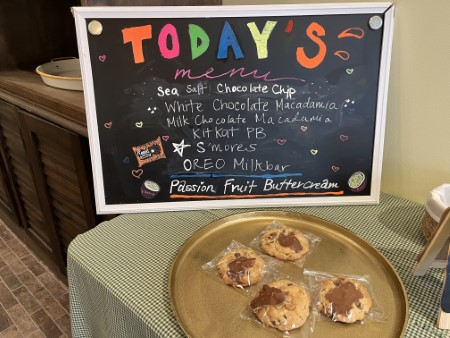 TODAY'S
menu
Sea Salt Chocolate Chip
White Chocolate Macadamia
Milk Chocolate Macadamia
KitKat PB
S'mores
OREO Milkbar
Passion Fruit Buttercream